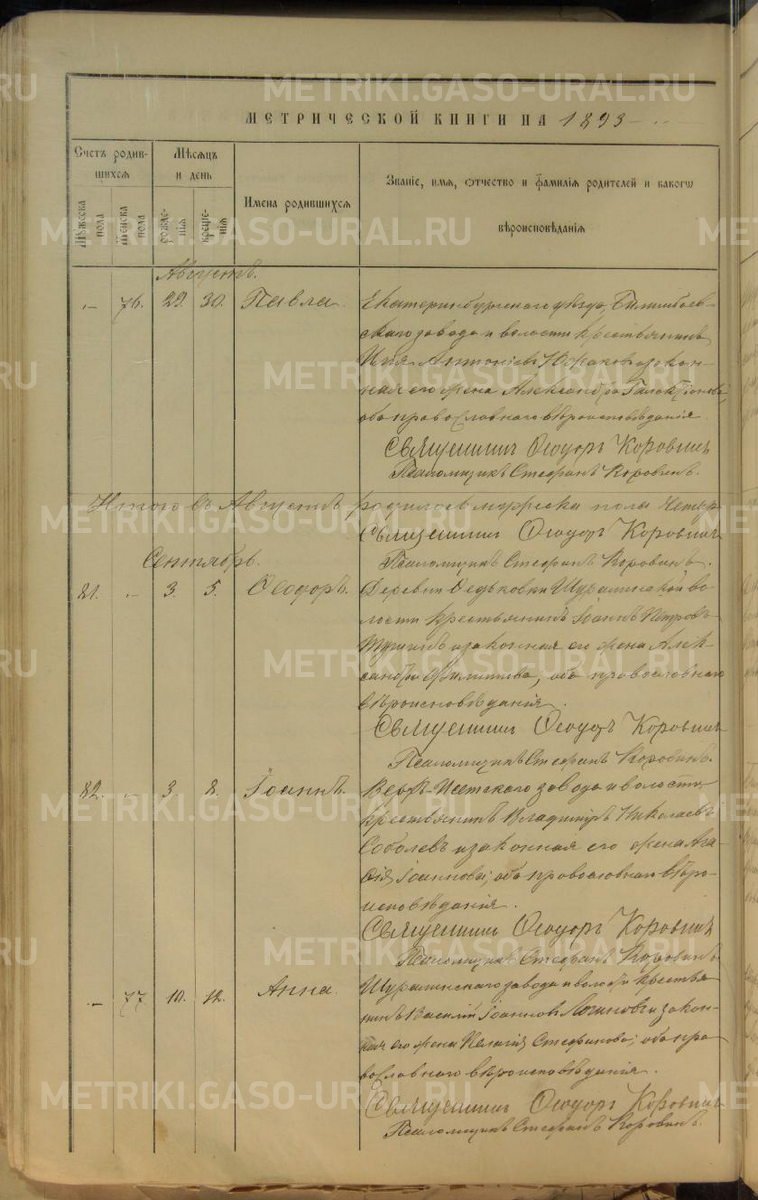 METRIKI.GASO-URAL.RU
МЕТРИЧЕСКОЙ КНИГИ НА 1893
Счетъ родившихся
Мѣсяцъ и день
Имена родившихся
Званіе, имя, отчество и фамилія родителей и какого вѣроисповѣданія
Мужеска пола
Женска пола
рожденія
крещенія
Августъ.
76. 29. 30. Павла.
Екатеринбургскаго уѣзда, Билимбаев-
скаго завода и волости крестьянинъ
Антоніевъ закон-
ная его жена Александра
оба православнаго вѣроисповѣданія.
Священникъ Ѳеодоръ Коровинъ
Псаломщикъ Стефанъ Коровинъ.
Итого въ Августѣ родилось мужеска пола
Священникъ Ѳеодоръ Коровинъ
Псаломщикъ Стефанъ Коровинъ.
Сентябрь.
81. 3. 5. Ѳеодоръ.
Деревни Федьковки Шуралинской во-
лости крестьянинъ Іоаннъ Петровъ
и законная его жена Алек-
сандра Филиппова, оба православнаго
вѣроисповѣданія.
Священникъ Ѳеодоръ Коровинъ
Псаломщикъ Стефанъ Коровинъ.
82. 3. 8. Іоаннъ.
Верх-Исетскаго завода и волости,
крестьянинъ Владиміръ Николаевъ
Соболевъ и законная его жена Ага-
ѳія Іоаннова; оба православнаго вѣро-
исповѣданія.
Священникъ Ѳеодоръ Коровинъ
Псаломщикъ Стефанъ Коровинъ.
77. 10. 12. Анна.
Шуралинскаго завода и волости кресть-
нинъ Василій Іоанновъ Логиновъ и закон-
ная его жена Пелагія Стефанова; оба пра-
вославнаго вѣроисповѣданія.
Священникъ Ѳеодоръ Коровинъ
Псаломщикъ Стефанъ Коровинъ.